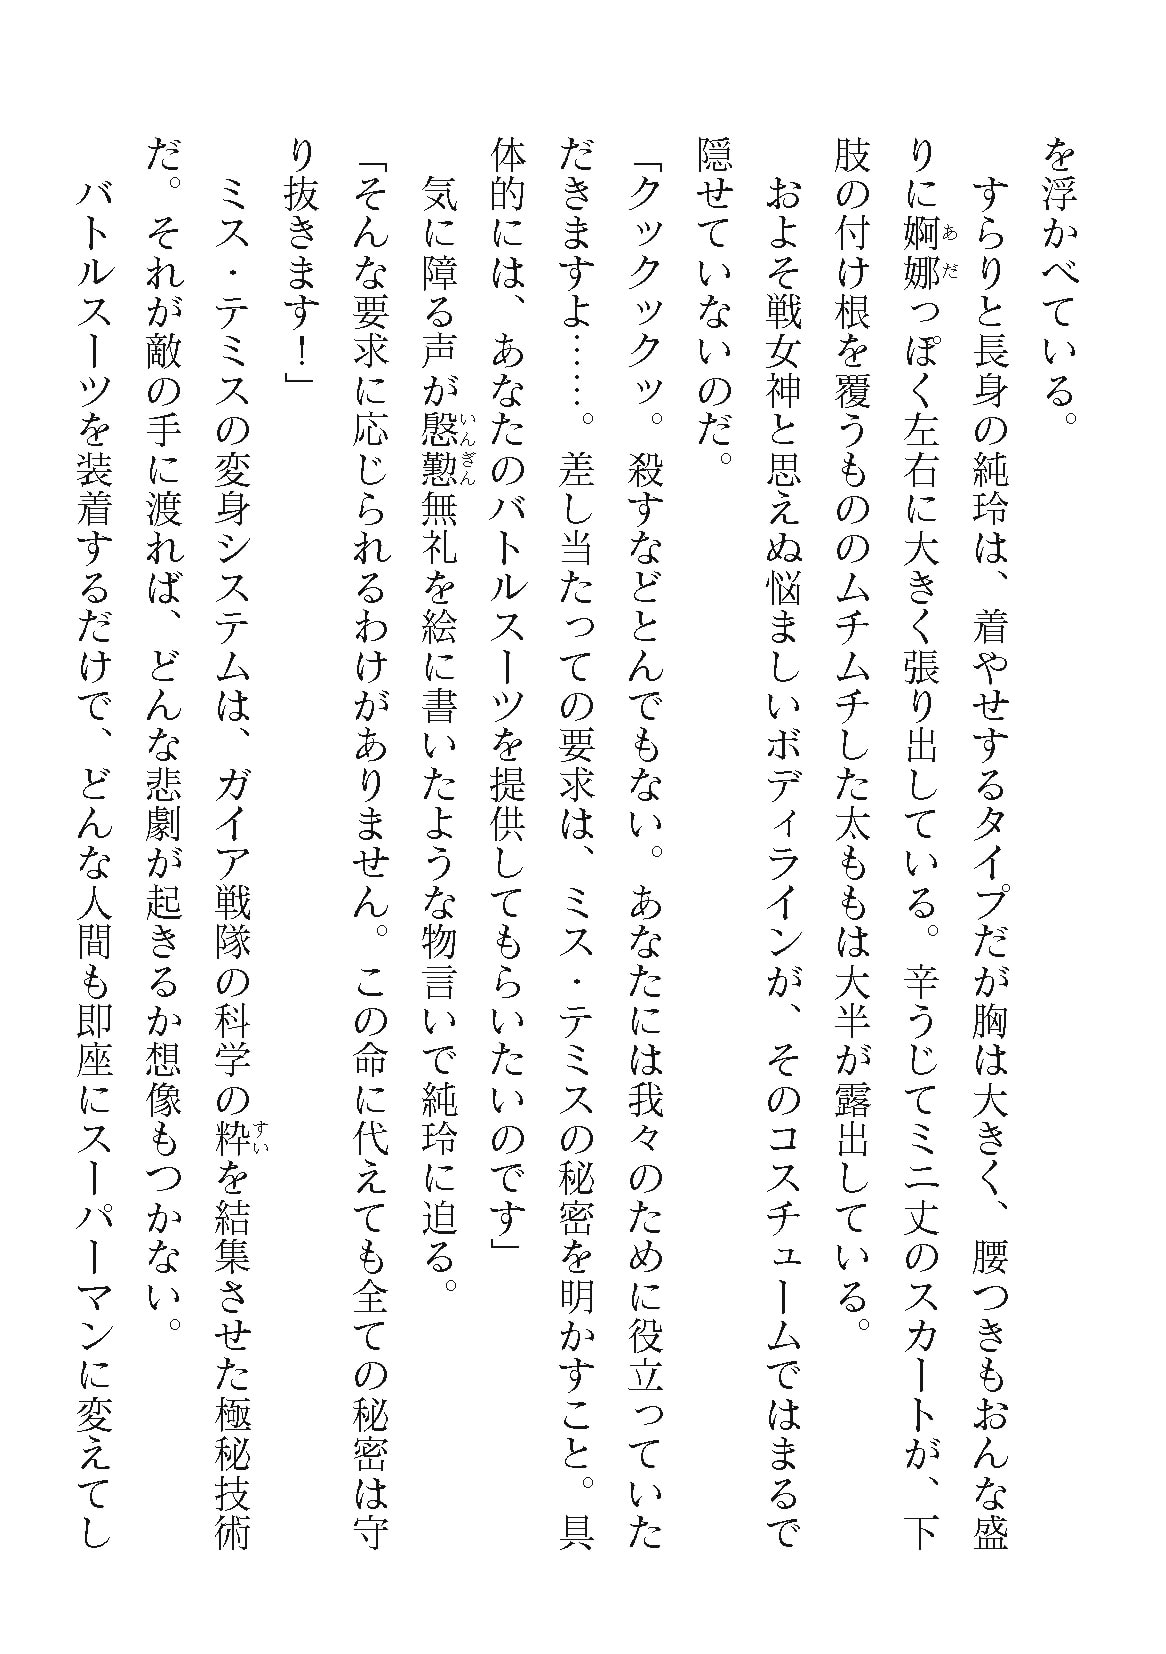 を浮かべている。
すらりと長身の純玲は、着やせするタイプだが胸は大きく、腰つきもおんな盛
りに婀娜っぽく左右に大きく張り出している。辛うじてミニ丈のスカートが、下
あだ
肢の付け根を覆うもののムチムチした太ももは大半が露出している。
およそ戦女神と思えぬ悩ましいボディラインが、そのコスチュームではまるで
隠せていないのだ。
「クックックッ。殺すなどとんでもない。あなたには我々のために役立っていた
だきますよ……。差し当たっての要求は、ミス・テミスの秘密を明かすこと。具
体的には、あなたのバトルスーツを提供してもらいたいのです」
気に障る声が慇懃無礼を絵に書いたような物言いで純玲に迫る。
いんぎん
「そんな要求に応じられるわけがありません。この命に代えても全ての秘密は守
り抜きます！」
ミス・テミスの変身システムは、ガイア戦隊の科学の粋を結集させた極秘技術
すい
だ。それが敵の手に渡れば、どんな悲劇が起きるか想像もつかない。
バトルスーツを装着するだけで、どんな人間も即座にスーパーマンに変えてし